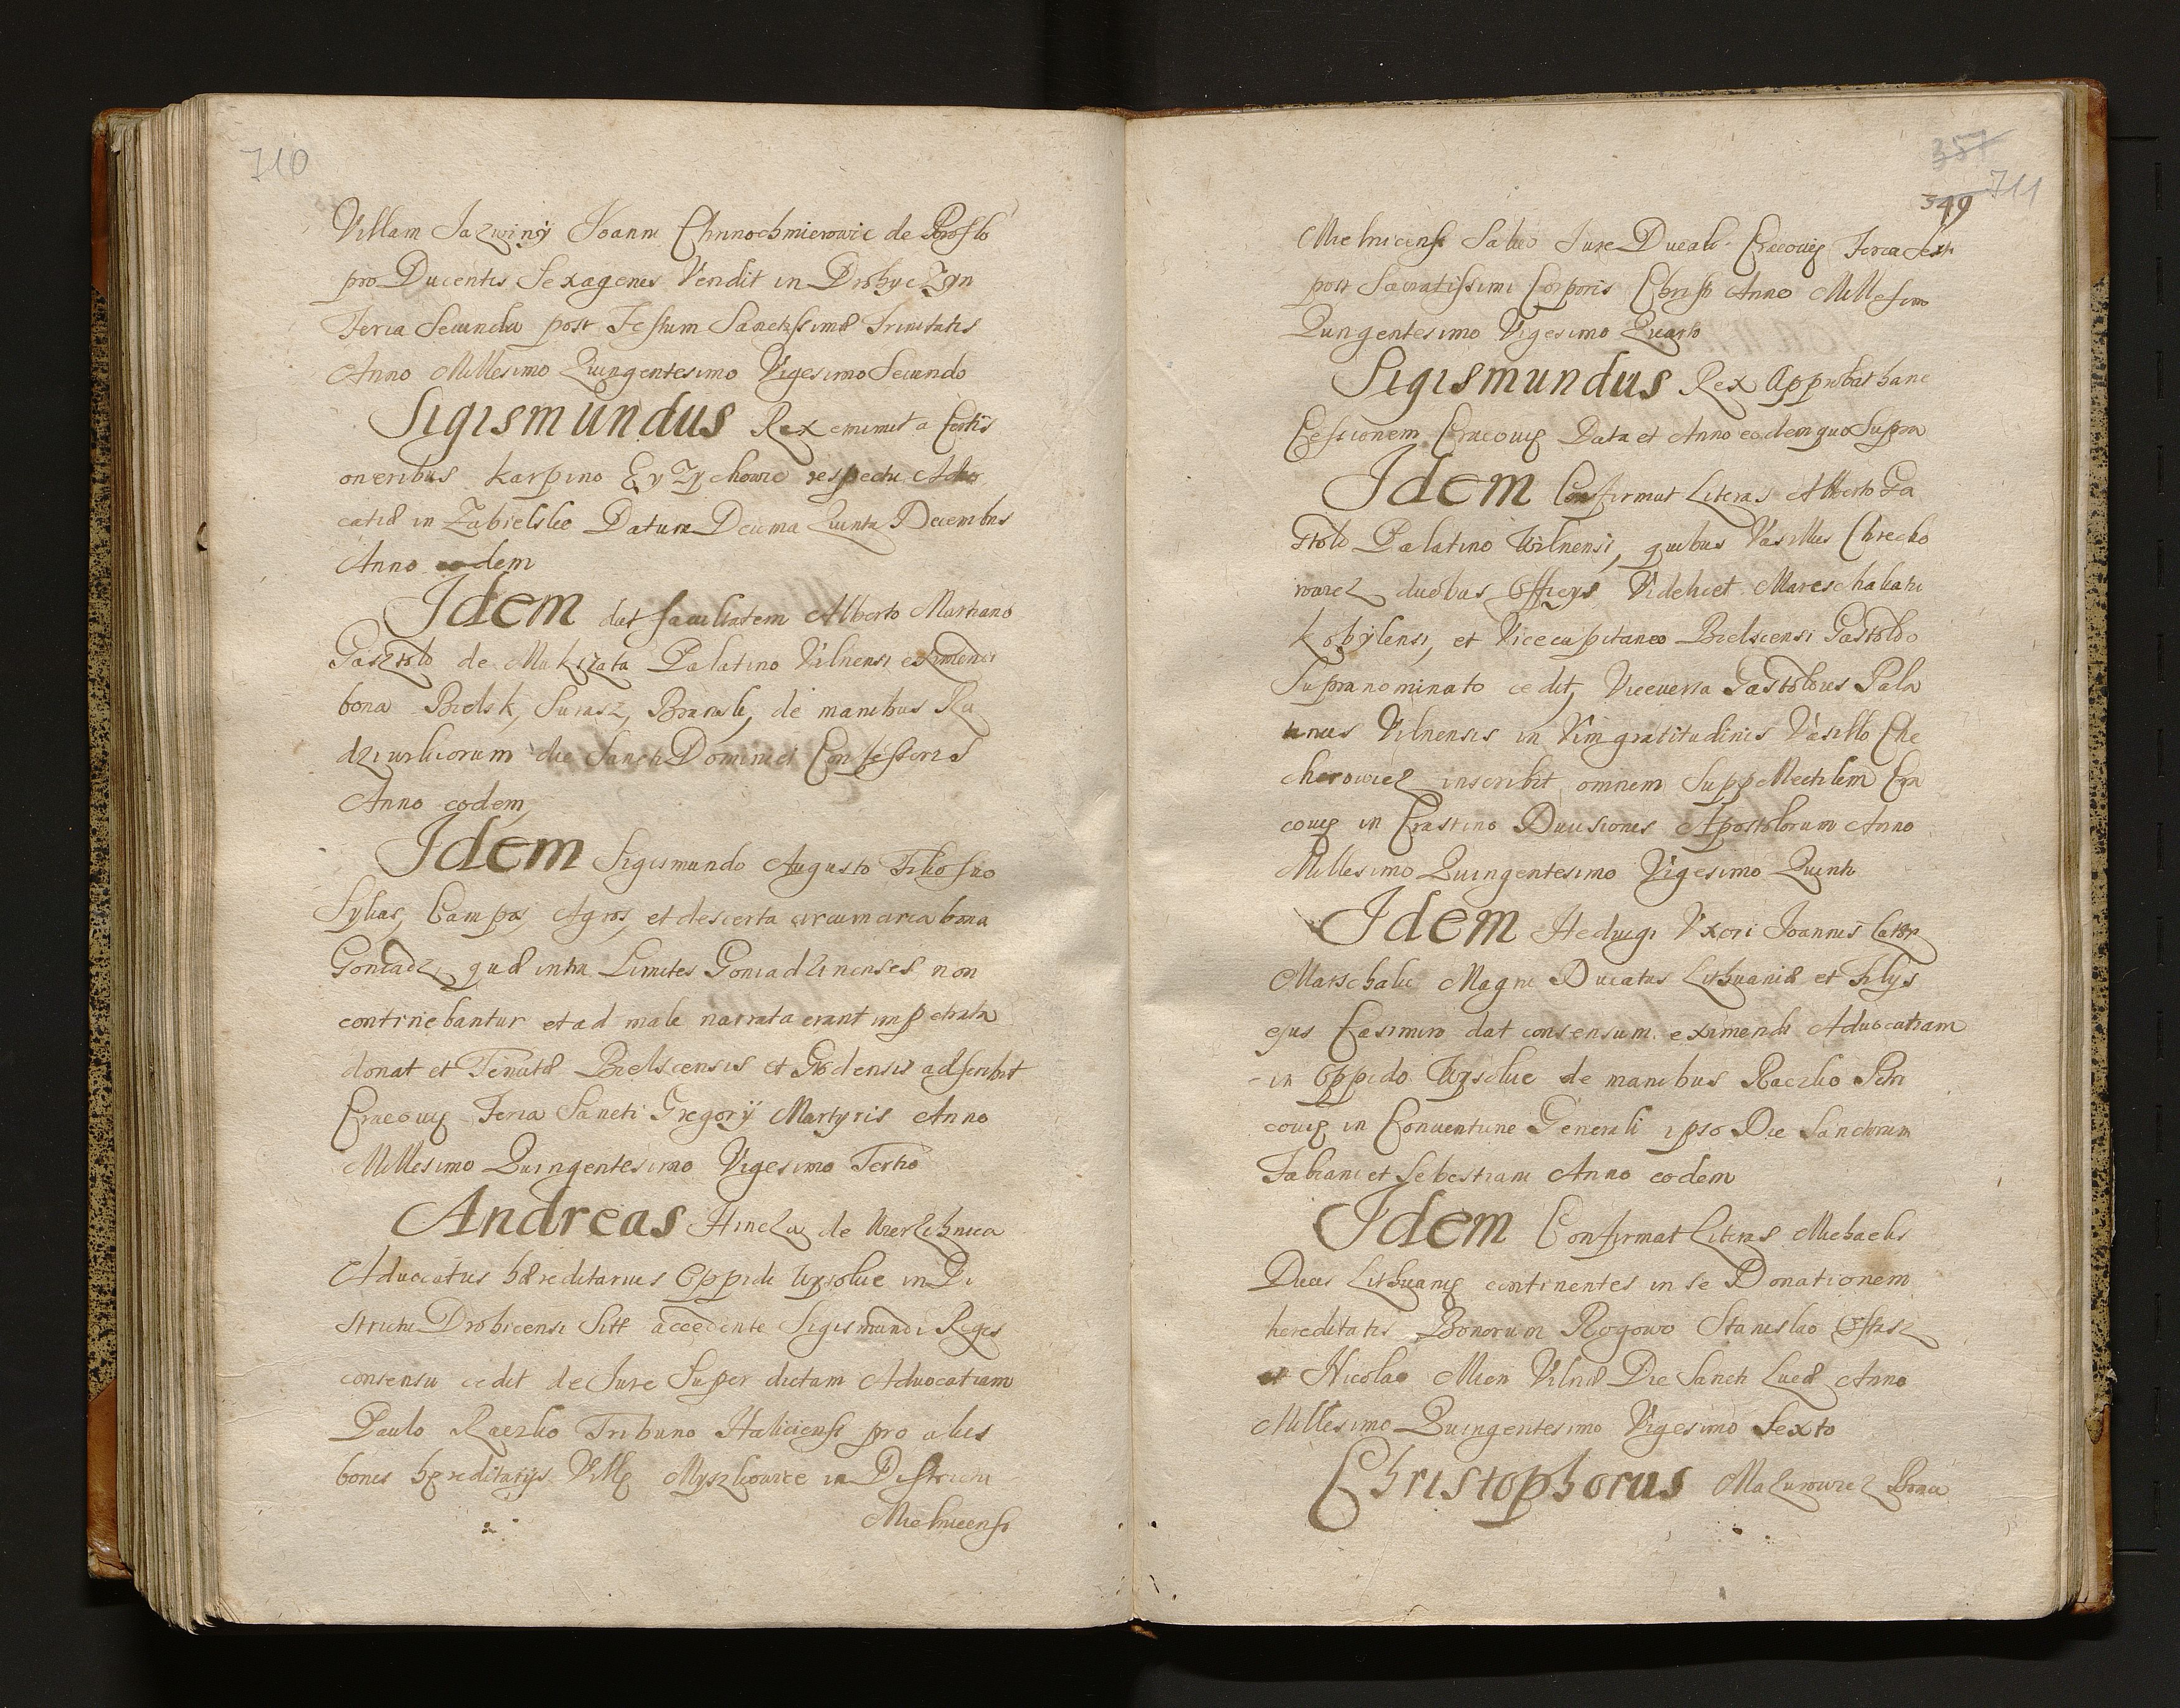 710
Villam Jazwiny Joanni Chrinochmierowic de Proslo
pro Ducentis Sexagenis Vendit in Drohyczyn
Feria Secunda post Festum Sanctissimæ Trinitatis
Anno Millesimo Quingentesimo Vigesimo Secundo
Sigismundus Rex eximit a certis
oneribus Karpino Eyzychowic respectu Advo
catiæ in Zabielskie Datum Decima Quinta Decembris
Anno eodem
Idem dat facultatem Alberto Martiano
Gasztold de Mukizata Palatino Vilnensi eximendi
bona Bielsk, Surasz, Bransk, de manibus Ra
dziwiliorum die Sancti Dominici Confessoris
Anno eodem,
Idem Sigismundo Augusto Filio suo
Sylvas, Campos, Agros, et deserta circumcirca bona
Goniadz, quæ intra Limites Goniadzinenses non
continebantur et ad male narrata erant impetrata
donat et Tenutæ Bielscensis et Grodensis adscribit
Cracoviæ Feria Sancti Gregorÿ Martyris Anno
Millesimo Quingentesimo Vigesimo Tertio
Andreas Hincza de Wierzchnica
Advocatus hæreditarius Oppidi Wysokie in Di
strictu Drohicensi Sitt accedente Sigismundi Regis
consensu cedit de Jure Super dictam Advocatiam
Paulo Raczko Tribuno Haliciensi pro aliis
bonis hęreditarÿs Villę Myszkowice in Districtu
Mielnicensi
357
349 711
Mielnicensi Salvo Jure Ducali Cracovię Feria Sexta
post Sacratissimi Corporis Christi Anno Millesimo
Quingentesimo Vigesimo Quarto
Sigismundus Rex Approbat hanc
Cessionem Cracovię Data et Anno eodem quo Supra
Idem Confirmat Literas Alberto Ga
stold Palatino Wilnensi, quibus Vasillus Chrecko
wicz duobus Officys Videlicet Mareschalatu
Kobylensi, et Vicecapitaneo Bielscensi Gastoldo
Supranominato cedit, Viceversa Gastoldus Pala
tinus Vilnensis in Vim gratitudinis Vasillo Chre
cherowicz inscribit omnem Suppellectilem Cra
covię in Crastino Divisionis Apostolorum Anno
Millesimo Quingentesimo Vigesimo Quinto
Idem Heduigi Uxori Joannis
Marschalci Magni Ducatus Lithuaniæ et Filys
ejus Casimiro dat consensum eximendi Advocatiam
in Oppido Wysokie de manibus Raczko Petri
covię in Conventione Generali ipso Die Sanctorum
Fabiani et Sebestiani Anno eodem
Idem Confirmat Literas Michaelis
Ducis Lithuanię continentes in se Donationem
hereditatis Bonorum Rogowo Stanislao
et Nicolao Mien Vilnæ Die Sancti Lucæ Anno
Millesimo Quingentesimo Vigesimo Sexto
Christophorus Mazurowicz Bona